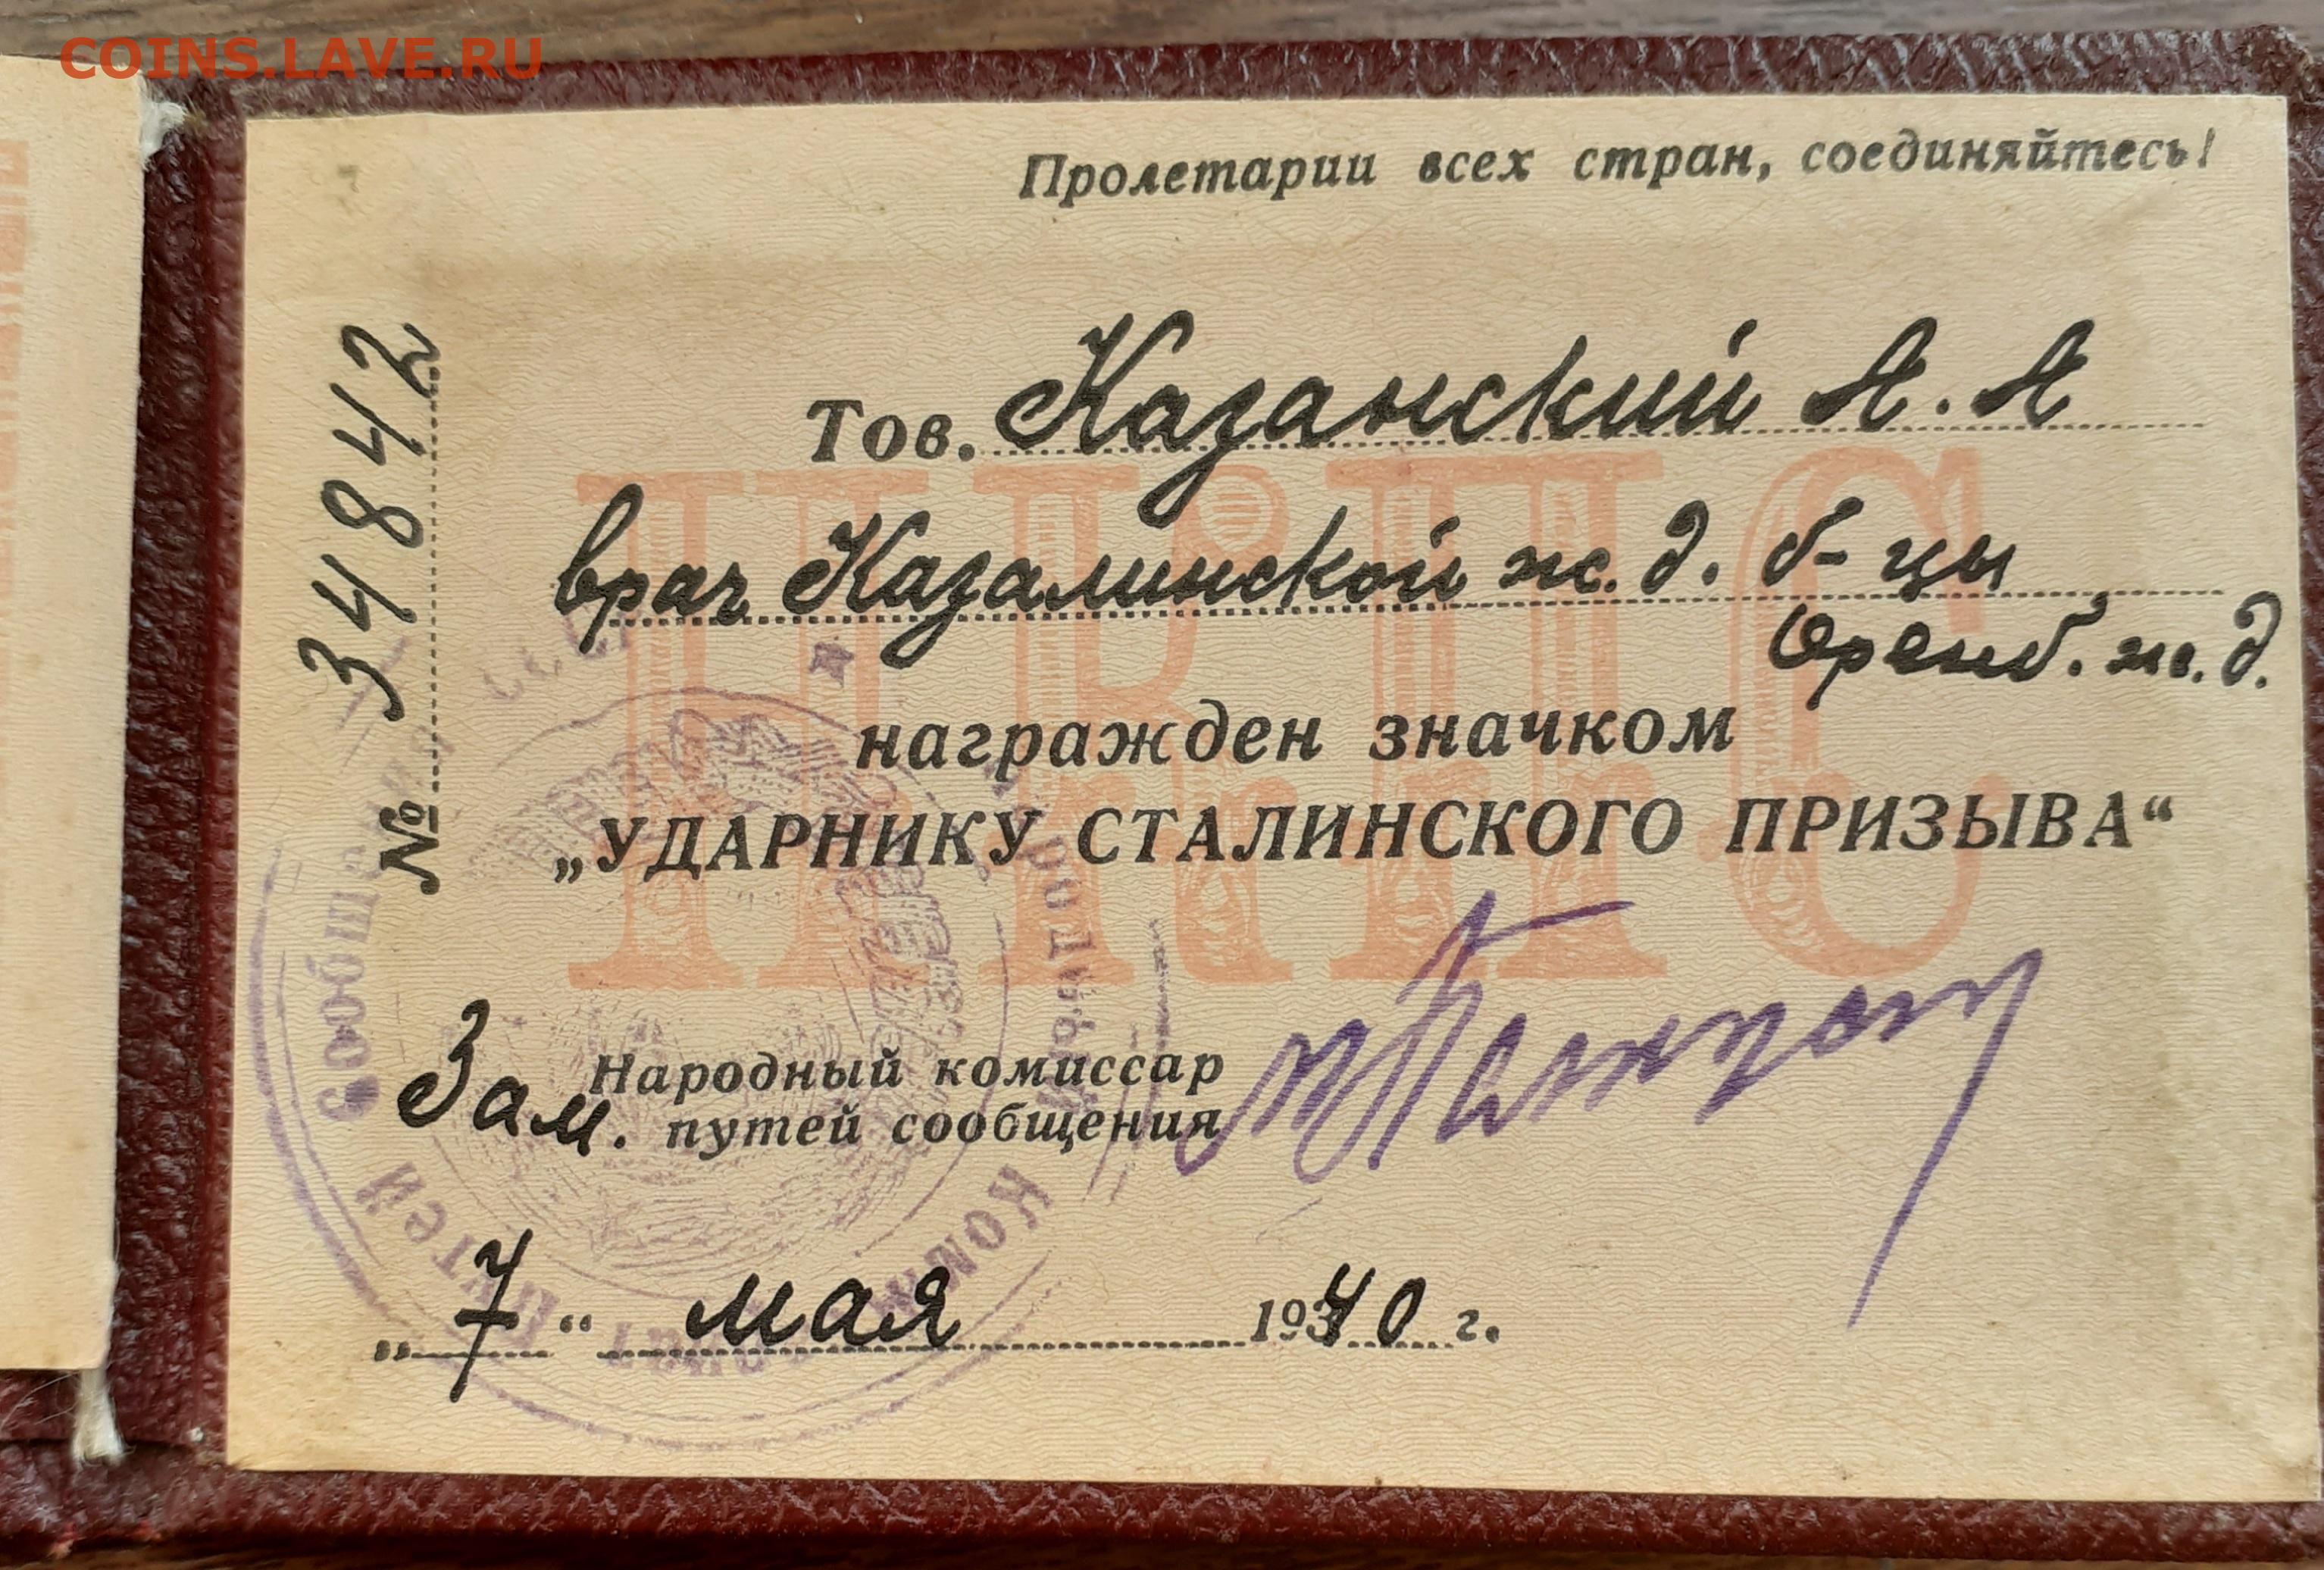 COINS.LAVE.RU
Пролетарии всех стран, соединяйтесь!
№ 34842
Тов. Казанский А. А
врач Казалинской ж. д. б-цы
Оренб. ж. д.
НКПС
награжден значком
„УДАРНИКУ СТАЛИНСКОГО ПРИЗЫВА“
Зам. Народный комиссар
путей сообщения
„7“ мая 1940 г.
Народный Комиссариат Путей Сообщения